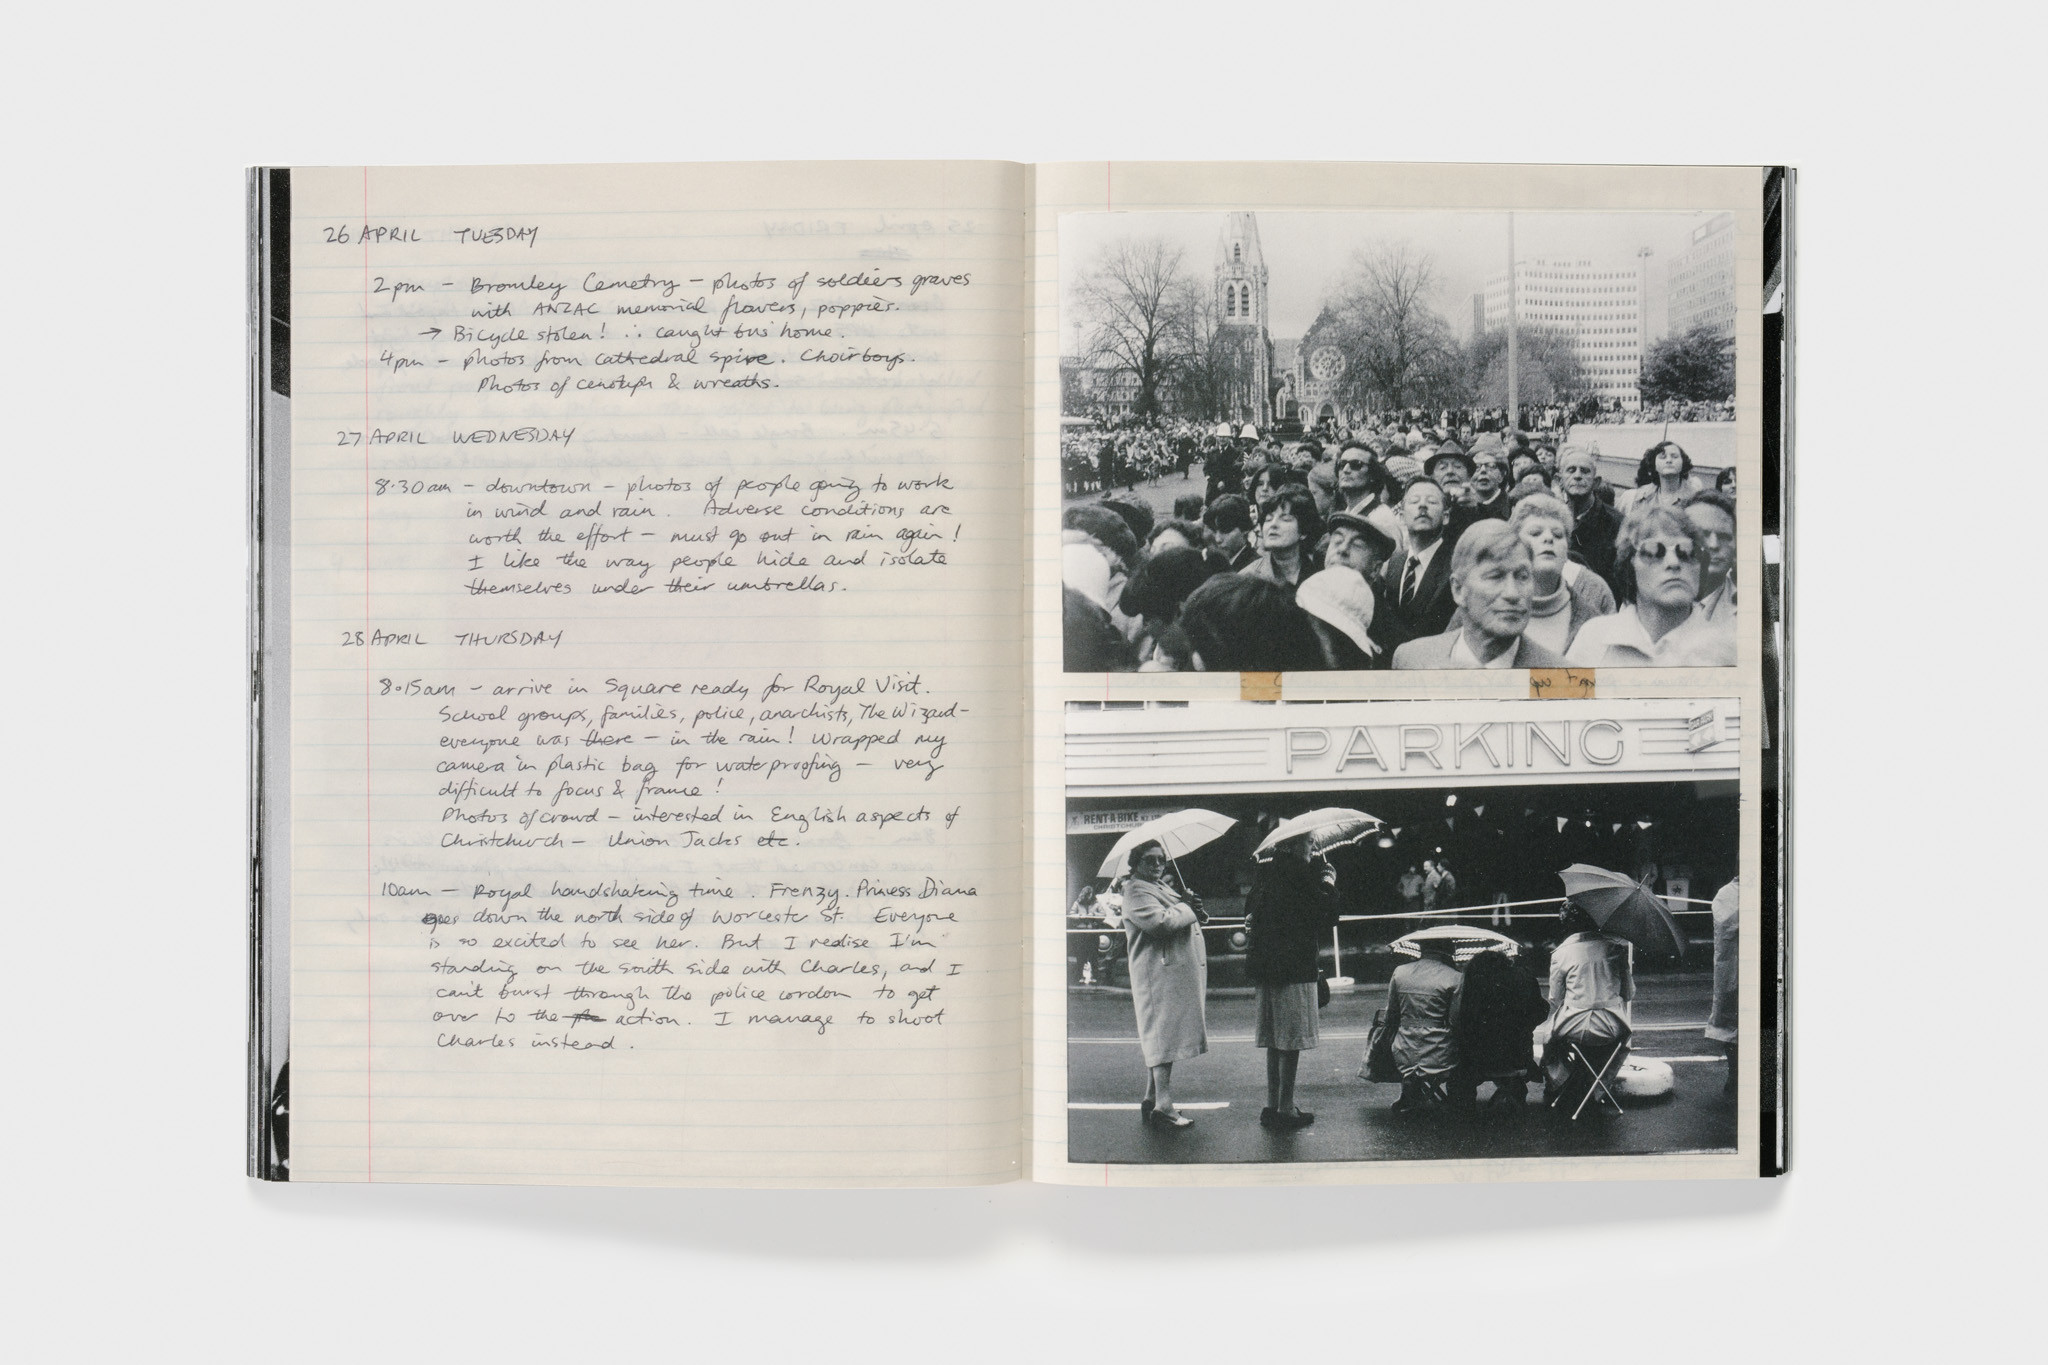 26 APRIL TUESDAY
2pm – Bromley Cemetry – photos of soldiers graves
with ANZAC memorial flowers, poppies.
→ Bicycle stolen! ∴ caught bus home.
4pm – photos from cathedral spire. Choirboys.
Photos of cenotaph & wreaths.
27 APRIL WEDNESDAY
8.30am – downtown – photos of people going to work
in wind and rain. Adverse conditions are
worth the effort – must go out in rain again!
I like the way people hide and isolate
themselves under their umbrellas.
28 APRIL THURSDAY
8.15am – arrive in Square ready for Royal Visit.
School groups, families, police, anarchists, The Wizard –
everyone was there – in the rain! Wrapped my
camera in plastic bag for waterproofing – very
difficult to focus & frame!
Photos of crowd – interested in English aspects of
Christchurch – Union Jacks etc.
10am – Royal handshaking time. Frenzy. Princess Diana
goes down the north side of Worcester St. Everyone
is so excited to see her. But I realise I'm
standing on the south side with Charles, and I
can't burst through the police cordon to get
over to the action. I manage to shoot
Charles instead.
PARKING
RENT A BIKE
CHRISTCHURCH